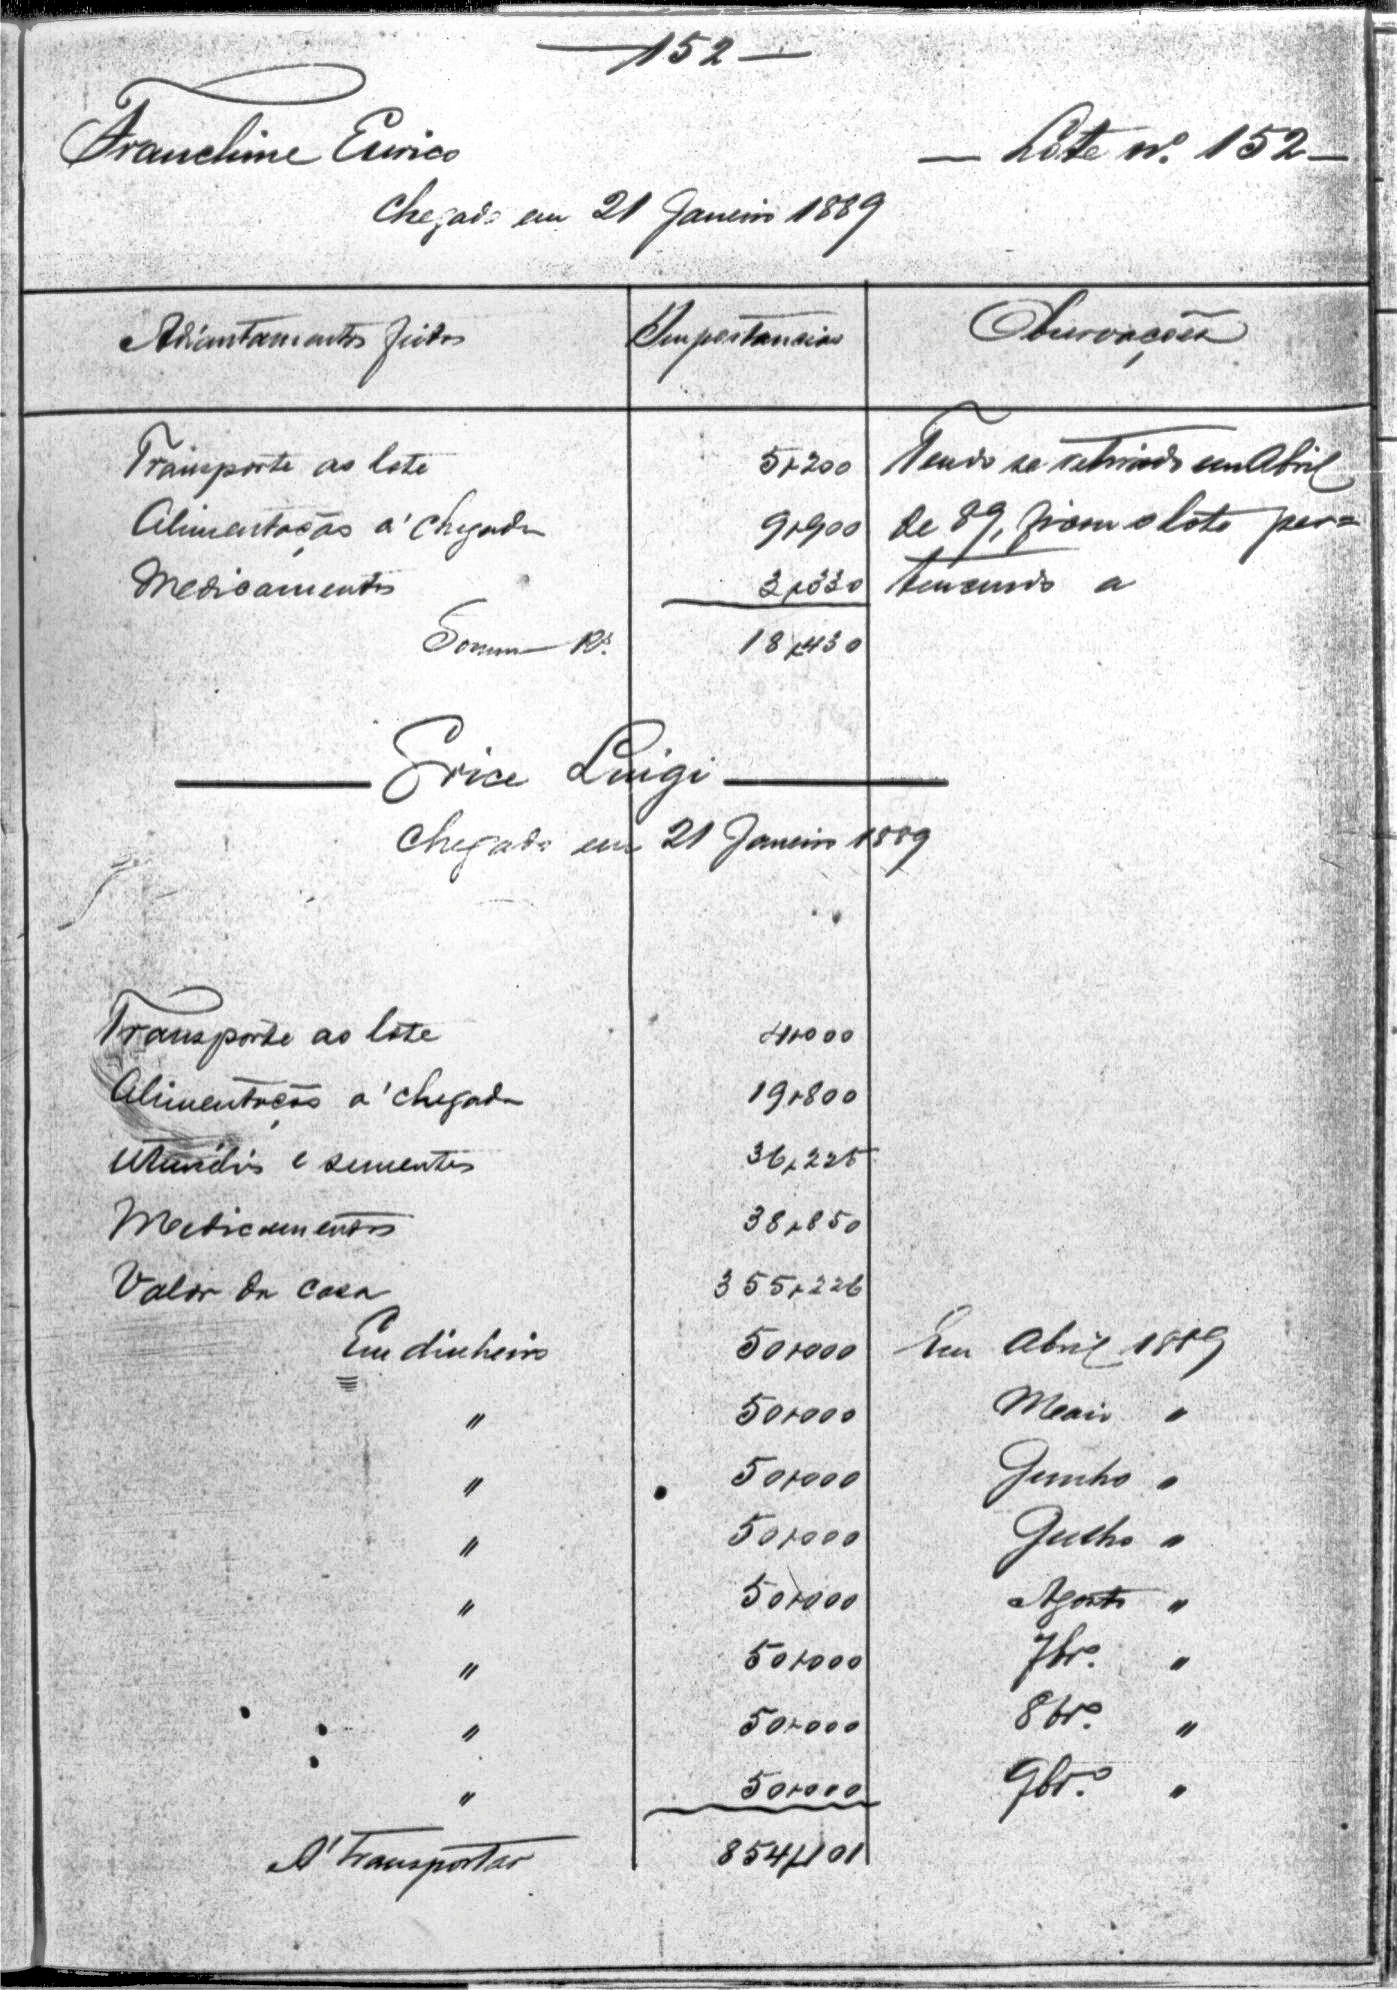 — 152 —
Franchine Eurico — Lote nº. 152 —
Chegado em 21 Janeiro 1889
Adiantamentos feitos Importancias Observações
Transporte ao lote 5,200 Tendo se retirado em Abril
Alimentação a' chegada 9,900 de 89, ficou o lote per=
Medicamentos 3,330 tencendo a
Somma Rs. 18,430
Erice Luigi
Chegado em 21 Janeiro 1889
Transporte ao lote 4,000
Alimentação a' chegada 19,800
Utensilis e sementes 36,225
Medicamentos 38,850
Valor da casa 355,226
Em dinheiro 50,000 Em Abril 1889
" 50,000 Maio "
" 50,000 Junho "
" 50,000 Julho "
" 50,000 Agosto "
" 50,000 7brº. "
" 50,000 8brº. "
" 50,000 9brº. "
A' transportar 854,101